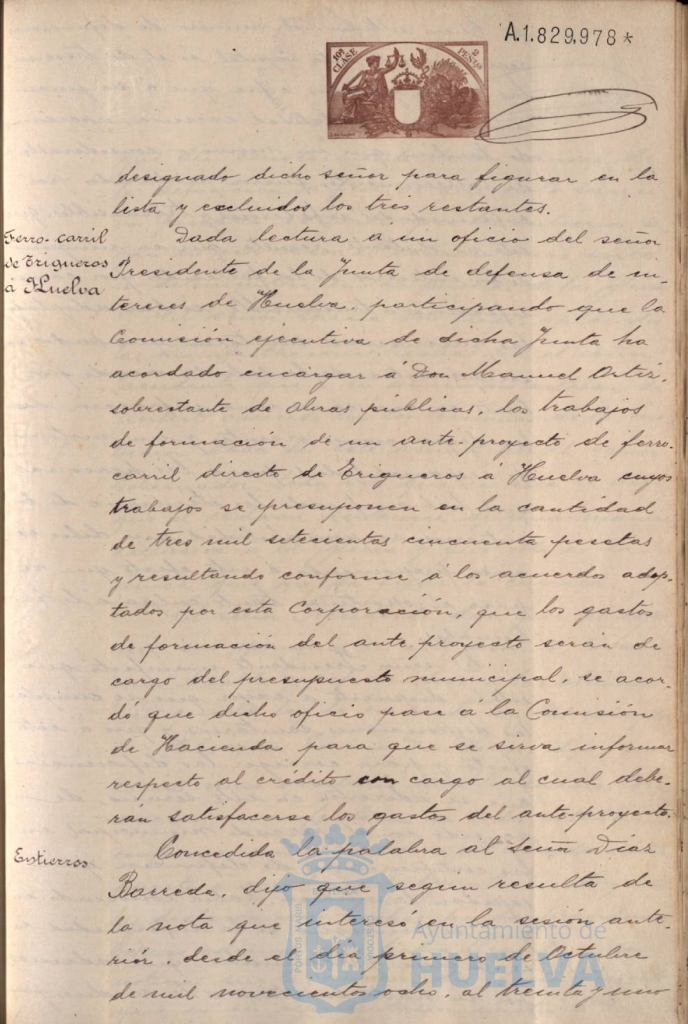 A.1.829,978*
10ª CLASE
2 PESETAS
designado dicho señor para figurar en la
lista y excluidos los tres restantes.
Ferro-carril
de Trigueros
á Huelva
Dada lectura a un oficio del señor
Presidente de la Junta de defensa de in-
tereses de Huelva, participando que la
Comisión ejecutiva de dicha Junta ha
acordado encargar á Don Manuel Ortiz,
sobrestante de obras públicas, los trabajos
de formación de un ante-proyecto de ferro-
carril directo de Trigueros á Huelva cuyos
trabajos se presuponen en la cantidad
de tres mil setecientas cincuenta pesetas
y resultando conforme á los acuerdos adop-
tados por esta Corporación, que los gastos
de formación del ante-proyecto serán de
cargo del presupuesto municipal, se acor-
dó que dicho oficio pase á la Comisión
de Hacienda para que se sirva informar
respecto al crédito con cargo al cual debe-
rán satisfacerse los gastos del ante-proyecto.
Entierros
Concedida la palabra al señor Díaz
Barreda, dijo que segun resulta de
la nota que interesó en la sesión ante-
riór, desde el día primero de Octubre
de mil novecientos ocho, al treinta y uno
Ayuntamiento de
HUELVA
PORTUS MARIS
CUSTODIA